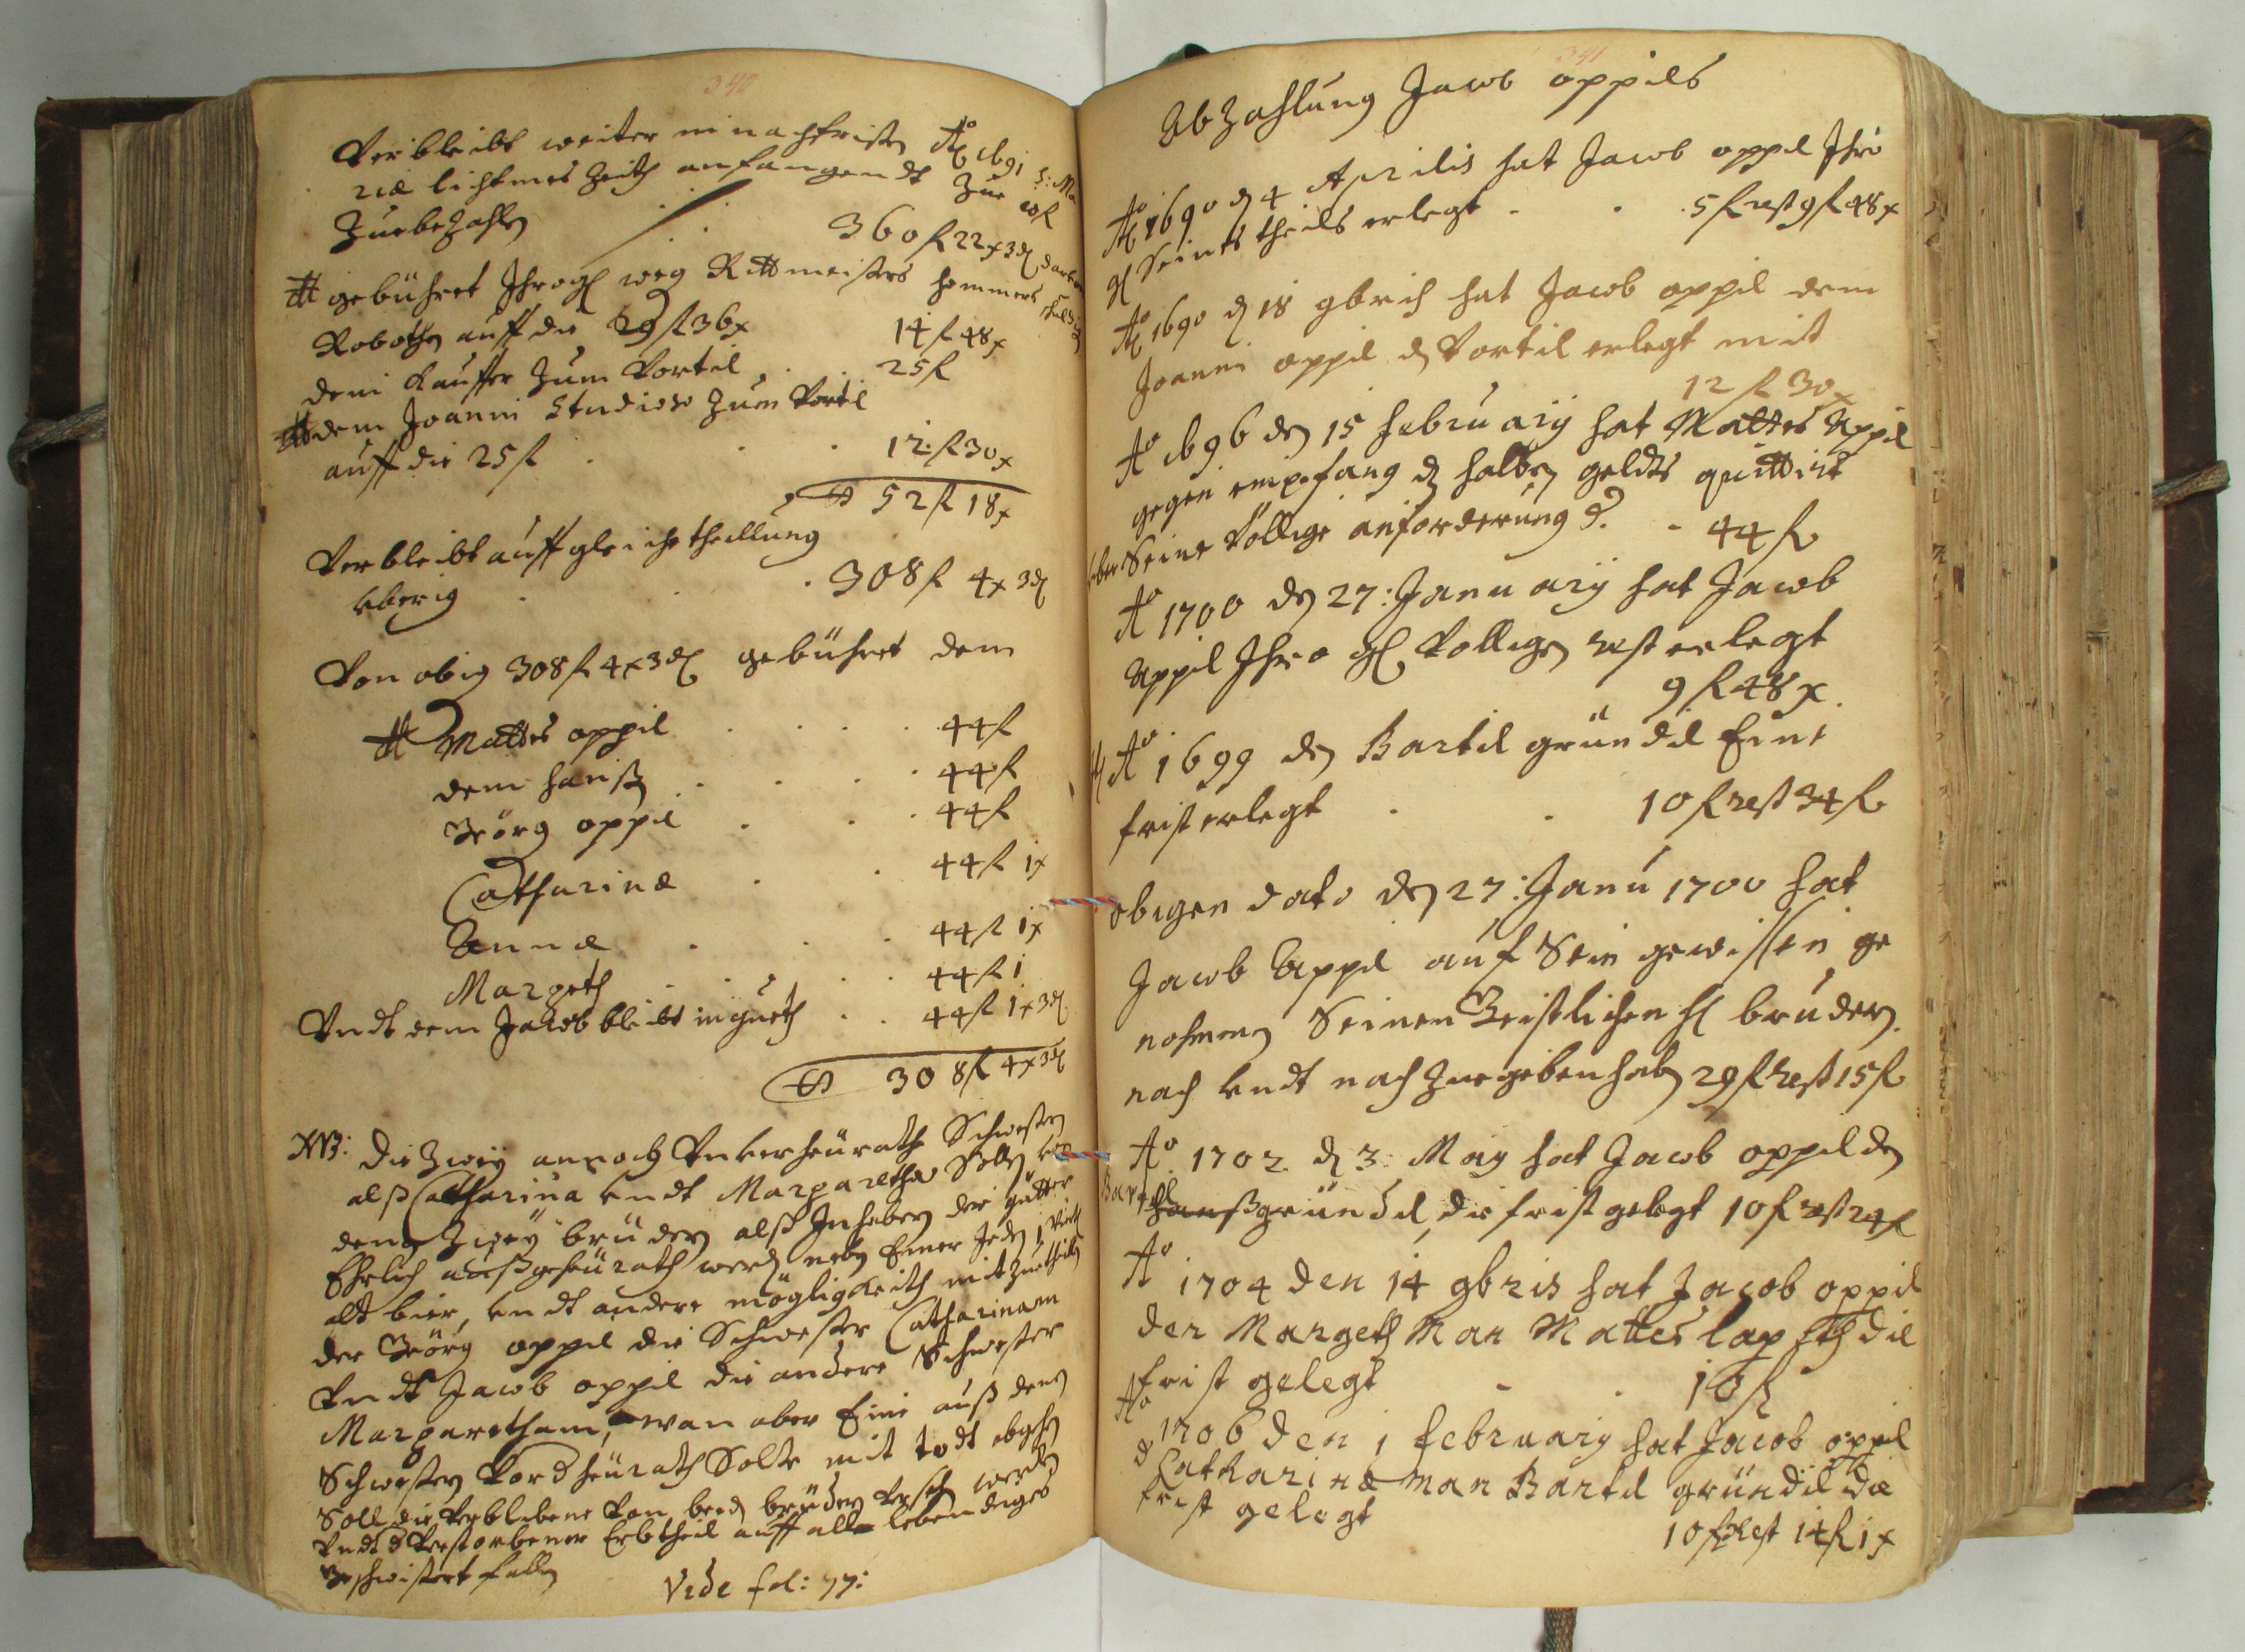 340
Verbleibt weiter in nachfristen Aō 1691 S: Ma
riæ lichtmes Zeith anfangendt Zue 10 f
Zuebezahlen 360 f 22 x 3 d
gebühret Ihro weg Rittmeisters hommers
Robothen auff die 29 f 36 x 14 f 48 x
dem Kauffer Zum Vortel . . 25 f
dem Joanni Studioso Zum Vortel
auff die 25 f . . . 12 f 30 x
52 f 18 x
Verbleibt auff gleiche theillung
vberig . . . 308 f 4 x 3 d
Von obig 308 f 4 x 3 d gebühret dem
Mattes oppil . . . . 44 f
dem hanß . . . 44 f
Görg oppil . . . 44 f
Catharinæ . . 44 f 1 x
Annæ . . . 44 f 1 x
Margeth . . . . 44 f 1
Vndt dem Jacob bleibt in gueth . . 44 f 1 x 3 d
308 f 4 x 3 d
NB: die Zweÿ annoch Vnverheürathe Schwestern
alß Catharina vndt Margaretha Sollen von
denen Zweÿ brüdern alß Inhabern der gütter
Ehrlich außgeheürath werden neben Einer Jeden 1 Virtl
alt bier, vndt andere mögligkeith mit Zuetheilen
der Görg oppil die Schwester Catharinam
Vndt Jacob oppil die andere Schwester
Margaretham, wan aber Eine auß denen
Schwestern Vor d heürath Solte mit todt abgehen
Soll die Verblibene Von beed brüdern Versehen werden
Vndt d Verstorbener Erbtheil auff alle lebendiges
Geschwistert fallen
Vide fol: 77:
341
AbZahlung Jacob oppils
Aō 1690 d 4 Aprilis hat Jacob oppil Ihro
gl Seints theils erlegt . . . 5 f rest 9 f 48 x
Aō 1690 d 18 9brish hat Jacob oppil dem
Joanni oppil d Vortil erlegt mit
12 f 30 x
Aō 1696 den 15 february hat Mattes Appil
gegen empfang d halben geldts quittirt
vber Seine Völlige anforderung d. - 44 f
Aō 1700 den 27: January hat Jacob
Appil Ihro gl Völligen rest erlegt
9 f 48 x
Aō 1699 den Bartel gründel Eine
frist erlegt . . 10 f rest 34 f
obigen dato den 27: Janu 1700 hat
Jacob Appil auf Sein gewissen ge
nohmen Seinen Geistlichen hl brudern
nach vndt nach Zuegeben haben 29 f Rest 15 f
Aō 1702 d 3: May hat Jacob oppil den
Bartel
hanß gründel, die frist gelegt 10 f rest 24 f
Aō 1704 den 14 9bris hat Jacob oppil
der Margeth Man Mattes die
frist gelegt - . 10 f
Aō 1706 den 1 february hat Jacob oppil
d Catharinæ Man Bartel gründil die
frist gelegt 10 f Rest 14 f 1 x